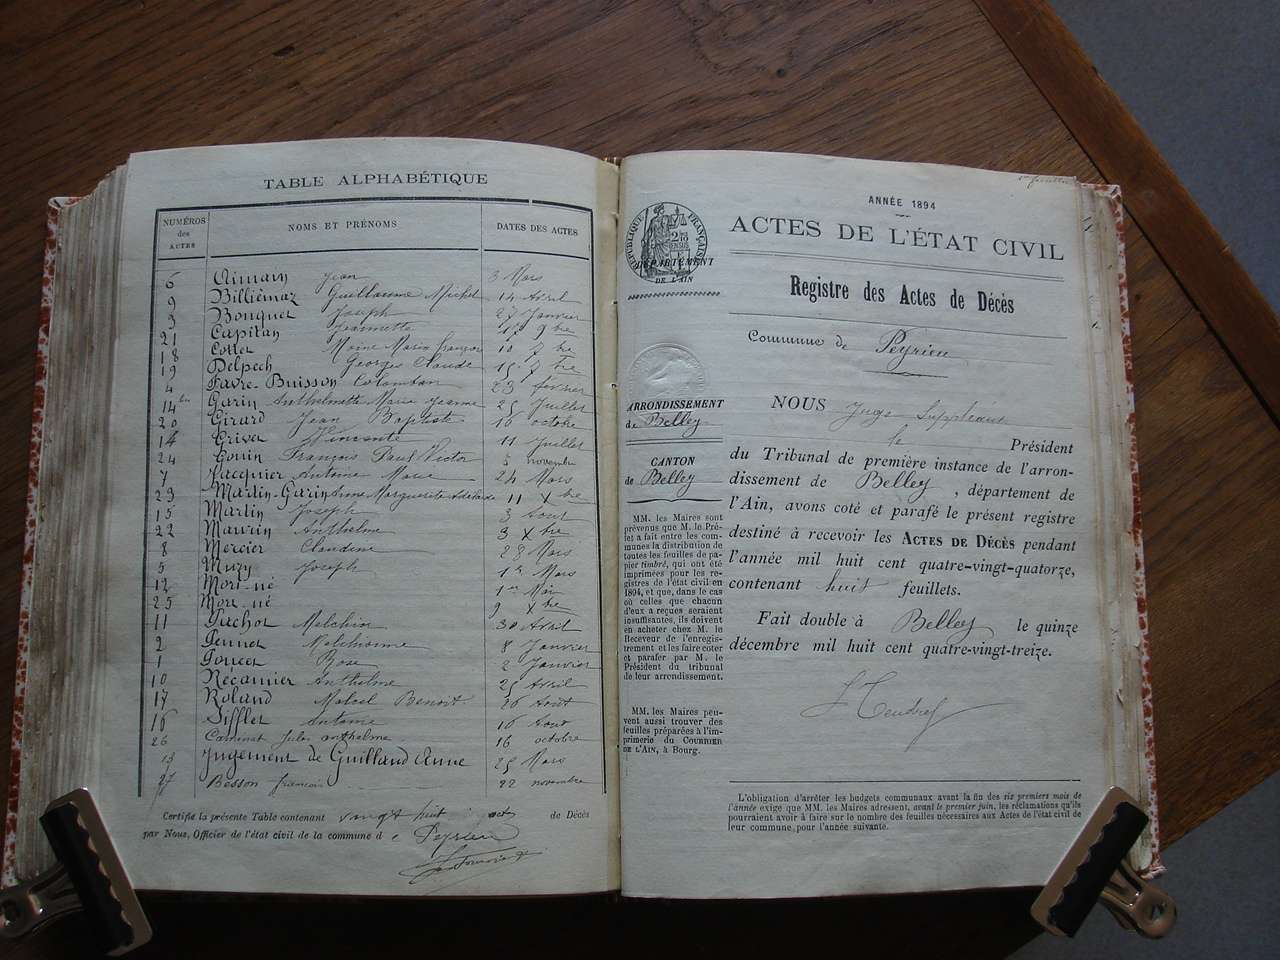 TABLE ALPHABÉTIQUE
NUMÉROS des ACTES
NOMS ET PRÉNOMS
DATES DES ACTES
6 Aimary Jean 3 Mars
9 Billiémaz Guillaume Michel 14 Avril
3 Bonquet Joseph 27 Janvier
21 Capitan Jeannette 17 9bre
18 Cottet Marie 10 7bre
19 Delpech Georges Claude 15 7bre
4 Favre-Buisson Colomban 23 février
14 bis Garin Anthelmette Marie Jeanne 25 Juillet
20 Girard Jean Baptiste 16 octobre
14 Grivet Vincente 11 Juillet
24 Gouin François Paul Victor 5 novembre
7 Jacquier Antoine Marie 24 Mars
23 Martin-Garin Anne Marguerite 11 Xbre
15 Martin Joseph 3 Aout
22 Maurin Anthelme 3 Xbre
8 Mercier Claudine 28 Mars
5 Muzy Joseph 1er Mars
12 Mort-né 1er Mai
25 Mort-né 9 Xbre
11 Pachot Melchior 30 Avril
2 Pernet 8 Janvier
1 Poncet Rose 2 Janvier
10 Récamier Anthelme 25 Avril
17 Roland Marcel Benoit 26 Aout
16 Sifflet Antoine 16 Aout
26 Commet Jules anthelme 16 octobre
13 Jugement de Guilland Anne 25 Mars
27 Besson françois 22 novembre
Certifie la présente Table contenant vingt huit actes de Décès
par Nous, Officier de l'état civil de la commune de Peyrieu
ANNÉE 1894
ACTES DE L'ÉTAT CIVIL
Registre des Actes de Décès
Commune de Peyrieu
RÉPUBLIQUE FRANÇAISE
DÉPARTEMENT
DE L'AIN
ARRONDISSEMENT
de Belley
CANTON
de Belley
MM. les Maires sont
prévenus que M. le Pré-
fet a fait entre les com-
munes la distribution de
toutes les feuilles de pa-
pier timbré, qui ont été
imprimées pour les re-
gistres de l'état civil en
1894, et que, dans le cas
où celles que chacun
d'eux a reçues seraient
insuffisantes, ils doivent
en acheter chez M. le
Receveur de l'enregis-
trement et les faire coter
et parafer par M. le
Président du tribunal
de leur arrondissement.
MM. les Maires peu-
vent aussi trouver des
feuilles préparées à l'im-
primerie du COURRIER
DE L'AIN, à Bourg.
NOUS Juge Suppléant
le Président
du Tribunal de première instance de l'arron-
dissement de Belley, département de
l'Ain, avons coté et parafé le présent registre
destiné à recevoir les ACTES DE DÉCÈS pendant
l'année mil huit cent quatre-vingt-quatorze,
contenant huit feuillets.
Fait double à Belley le quinze
décembre mil huit cent quatre-vingt-treize.
L'obligation d'arrêter les budgets communaux avant la fin des six premiers mois de
l'année exige que MM. les Maires adressent, avant le premier juin, les réclamations qu'ils
pourraient avoir à faire sur le nombre des feuilles nécessaires aux Actes de l'état civil de
leur commune, pour l'année suivante.